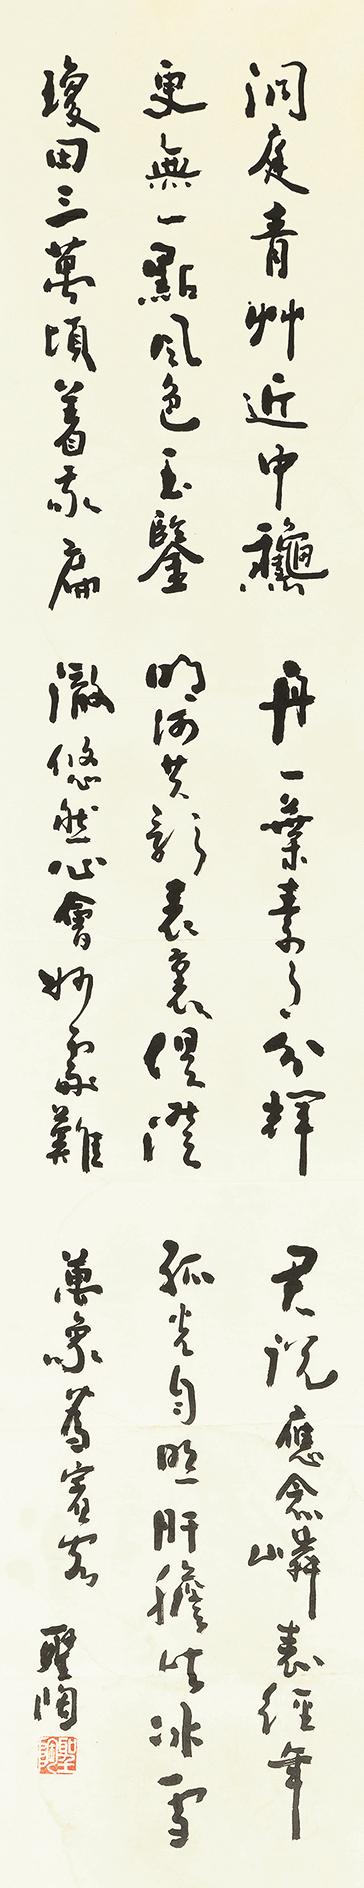 洞庭青艸近中龝
更無一點風色玉鑒
瓊田三萬頃著我扁
舟一葉素月分輝
明河共影表裏俱澄
澈悠然心會妙處難
君說應念嶙表經年
孤光自照肝膽皆冰雪
萬象為賓客
聖陶
聖陶